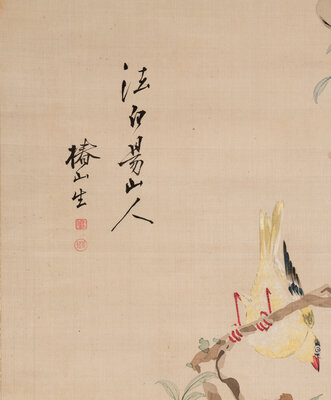 法白昜山人
椿山生